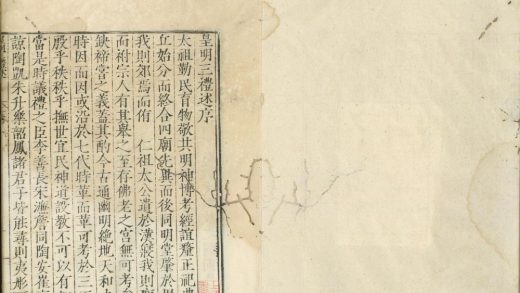 皇明三禮述序
太祖勤民育物敬共明神博考經誼釐正祀典
丘始分而終合四廟先異而後同明堂肇於周
我則郊焉而侑 仁祖太公遺於漢寢我則
而祔宗人有其舉之至存佛老之宮無可考
缺禘嘗之義蓋其酌今古通幽明絶地天和
時因而因或沿於七代時革而革可考於三
殷乎秩秩乎撫世宜民神道設教不可以有
當是時議禮之臣李善長宋濂詹同陶安崔
諒陶凱朱升樂韶鳳諸君子皆能尋則夷彤